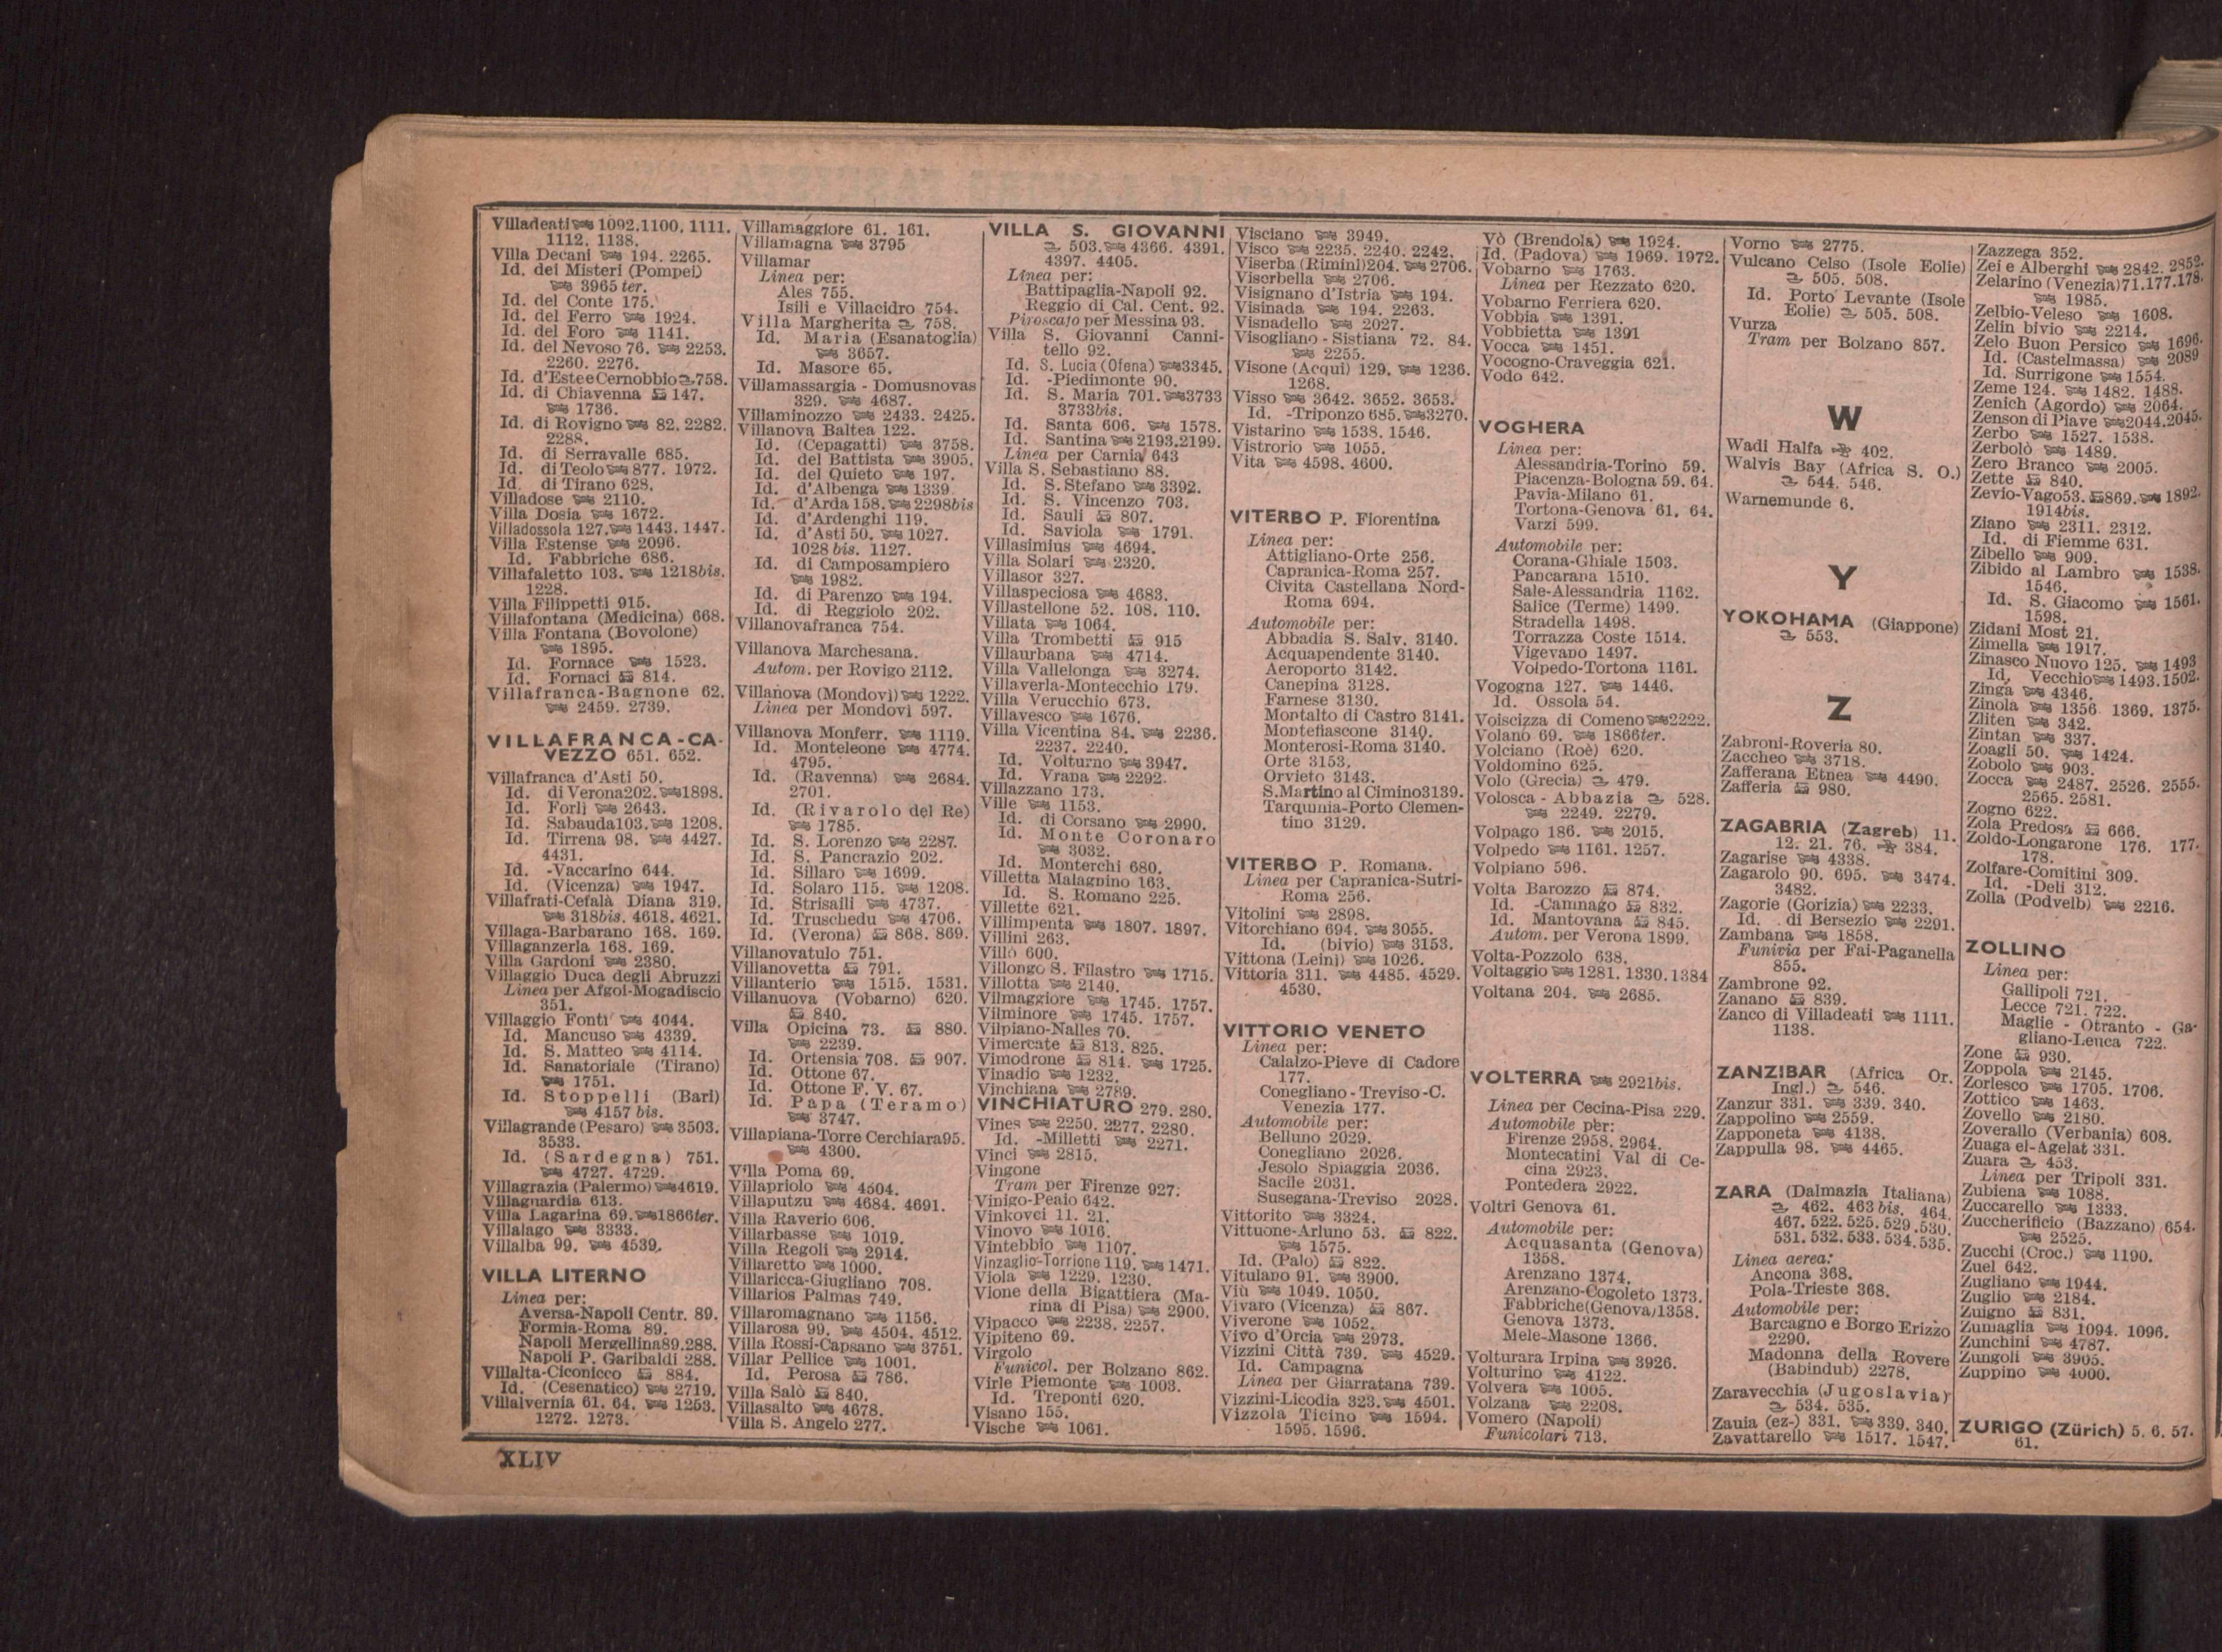 Villadeati 1092.1100. 1111.
1112. 1138.
Villa Decani 194. 2265.
Id. dei Misteri (Pompei)
3965 ter.
Id. del Conte 175.
Id. del Ferro 1924.
Id. del Foro 1141.
Id. del Nevoso 76. 2253.
2260. 2276.
Id. d'Este e Cernobbio 758.
Id. di Chiavenna 147.
1736.
Id. di Rovigno 82. 2282.
2288.
Id. di Serravalle 685.
Id. di Teolo 877. 1972.
Id. di Tirano 628.
Villadose 2110.
Villa Dosia 1672.
Villadossola 127. 1443. 1447.
Villa Estense 2096.
Id. Fabbriche 686.
Villafaletto 103. 1218bis.
1228.
Villa Filippetti 915.
Villafontana (Medicina) 668.
Villa Fontana (Bovolone)
1895.
Id. Fornace 1523.
Id. Fornaci 814.
Villafranca-Bagnone 62.
2459. 2739.
VILLAFRANCA-CA-
VEZZO 651. 652.
Villafranca d'Asti 50.
Id. di Verona 202. 1898.
Id. Forlì 2643.
Id. Sabauda 103. 1208.
Id. Tirrena 98. 4427.
4431.
Id. -Vaccarino 644.
Id. (Vicenza) 1947.
Villafrati-Cefalà Diana 319.
318bis. 4618. 4621.
Villaga-Barbarano 168. 169.
Villaganzerla 168. 169.
Villa Gardoni 2380.
Villaggio Duca degli Abruzzi
Linea per Afgoi-Mogadiscio
351.
Villaggio Fonti 4044.
Id. Mancuso 4339.
Id. S. Matteo 4114.
Id. Sanatoriale (Tirano)
1751.
Id. Stoppelli (Bari)
4157 bis.
Villagrande (Pesaro) 3503.
3533.
Id. (Sardegna) 751.
4727. 4729.
Villagrazia (Palermo) 4619.
Villaguardia 613.
Villa Lagarina 69. 1866ter.
Villalago 3333.
Villalba 99. 4539.
VILLA LITERNO
Linea per:
Aversa-Napoli Centr. 89.
Formia-Roma 89.
Napoli Mergellina 89.288.
Napoli P. Garibaldi 288.
Villalta-Ciconicco 884.
Id. (Cesenatico) 2719.
Villalvernia 61. 64. 1253.
1272. 1273.
XLIV
Villamaggiore 61. 161.
Villamagna 3795
Villamar
Linea per:
Ales 755.
Isili e Villacidro 754.
Villa Margherita 758.
Id. Maria (Esanatoglia)
3657.
Id. Masore 65.
Villamassargia - Domusnovas
329. 4687.
Villaminozzo 2433. 2425.
Villanova Baltea 122.
Id. (Cepagatti) 3758.
Id. del Battista 3905.
Id. del Quieto 197.
Id. d'Albenga 1339.
Id. d'Arda 158. 2298bis
Id. d'Ardenghi 119.
Id. d'Asti 50. 1027.
1028 bis. 1127.
Id. di Camposampiero
1982.
Id. di Parenzo 194.
Id. di Reggiolo 202.
Villanovafranca 754.
Villanova Marchesana.
Autom. per Rovigo 2112.
Villanova (Mondovì) 1222.
Linea per Mondovì 597.
Villanova Monferr. 1119.
Id. Monteleone 4774.
4795.
Id. (Ravenna) 2684.
2701.
Id. (Rivarolo del Re)
1785.
Id. S. Lorenzo 2287.
Id. S. Pancrazio 202.
Id. Sillaro 1699.
Id. Solaro 115. 1208.
Id. Strisaili 4737.
Id. Truschedu 4706.
Id. (Verona) 868. 869.
Villanovatulo 751.
Villanovetta 791.
Villanterio 1515. 1531.
Villanuova (Vobarno) 620.
840.
Villa Opicina 73. 880.
2239.
Id. Ortensia 708. 907.
Id. Ottone 67.
Id. Ottone F. V. 67.
Id. Papa (Teramo)
3747.
Villapiana-Torre Cerchiara 95.
4300.
Villa Poma 69.
Villapriolo 4504.
Villaputzu 4684. 4691.
Villa Raverio 606.
Villarbasse 1019.
Villa Regoli 2914.
Villaretto 1000.
Villaricca-Giugliano 708.
Villarios Palmas 749.
Villaromagnano 1156.
Villarosa 99. 4504. 4512.
Villa Rossi-Capsano 3751.
Villar Pellice 1001.
Id. Perosa 786.
Villa Salò 840.
Villasalto 4678.
Villa S. Angelo 277.
VILLA S. GIOVANNI
503. 4366. 4391.
4397. 4405.
Linea per:
Battipaglia-Napoli 92.
Reggio di Cal. Cent. 92.
Piroscafo per Messina 93.
Villa S. Giovanni Canni-
tello 92.
Id. S. Lucia (Ofena) 3345.
Id. -Piedimonte 90.
Id. S. Maria 701. 3733
3733bis.
Id. Santa 606. 1578.
Id. Santina 2193.2199.
Linea per Carnia 643
Villa S. Sebastiano 88.
Id. S. Stefano 3392.
Id. S. Vincenzo 703.
Id. Sauli 807.
Id. Saviola 1791.
Villasimius 4694.
Villa Solari 2320.
Villasor 327.
Villaspeciosa 4683.
Villastellone 52. 108. 110.
Villata 1064.
Villa Trombetti 915
Villaurbana 4714.
Villa Vallelonga 3274.
Villaverla-Montecchio 179.
Villa Verucchio 673.
Villavesco 1676.
Villa Vicentina 84. 2236.
2237. 2240.
Id. Volturno 3947.
Id. Vrana 2292.
Villazzano 173.
Ville 1153.
Id. di Corsano 2990.
Id. Monte Coronaro
3032.
Id. Monterchi 680.
Villetta Malagnino 163.
Id. S. Romano 225.
Villette 621.
Villimpenta 1807. 1897.
Villini 263.
Villò 600.
Villongo S. Filastro 1715.
Villotta 2140.
Vilmaggiore 1745. 1757.
Vilminore 1745. 1757.
Vilpiano-Nalles 70.
Vimercate 813. 825.
Vimodrone 814. 1725.
Vinadio 1232.
Vinchiana 2789.
VINCHIATURO 279. 280.
Vines 2250. 2277. 2280.
Id. -Milletti 2271.
Vinci 2815.
Vingone
Tram per Firenze 927.
Vinigo-Peaio 642.
Vinkovci 11. 21.
Vinovo 1016.
Vintebbio 1107.
Vinzaglio-Torrione 119. 1471.
Viola 1229. 1230.
Vione della Bigattiera (Ma-
rina di Pisa) 2900.
Vipacco 2238. 2257.
Vipiteno 69.
Virgolo
Funicol. per Bolzano 862.
Virle Piemonte 1003.
Id. Treponti 620.
Visano 155.
Vische 1061.
Visciano 3949.
Visco 2235. 2240. 2242.
Viserba (Rimini) 204. 2706.
Viserbella 2706.
Visignano d'Istria 194.
Visinada 194. 2263.
Visnadello 2027.
Visogliano - Sistiana 72. 84.
2255.
Visone (Acqui) 129. 1236.
1268.
Visso 3642. 3652. 3653.
Id. -Triponzo 685. 3270.
Vistarino 1538. 1546.
Vistrorio 1055.
Vita 4598. 4600.
VITERBO P. Fiorentina
Linea per:
Attigliano-Orte 256.
Capranica-Roma 257.
Civita Castellana Nord-
Roma 694.
Automobile per:
Abbadia S. Salv. 3140.
Acquapendente 3140.
Aeroporto 3142.
Canepina 3128.
Farnese 3130.
Montalto di Castro 3141.
Montefiascone 3140.
Monterosi-Roma 3140.
Orte 3153.
Orvieto 3143.
S. Martino al Cimino 3139.
Tarquinia-Porto Clemen-
tino 3129.
VITERBO P. Romana.
Linea per Capranica-Sutri-
Roma 256.
Vitolini 2898.
Vitorchiano 694. 3055.
Id. (bivio) 3153.
Vittona (Leinì) 1026.
Vittoria 311. 4485. 4529.
4530.
VITTORIO VENETO
Linea per:
Calalzo-Pieve di Cadore
177.
Conegliano - Treviso -C.
Venezia 177.
Automobile per:
Belluno 2029.
Conegliano 2026.
Jesolo Spiaggia 2036.
Sacile 2031.
Susegana-Treviso 2028.
Vittorito 3324.
Vittuone-Arluno 53. 822.
1575.
Id. (Palo) 822.
Vitulano 91. 3900.
Viù 1049. 1050.
Vivaro (Vicenza) 867.
Viverone 1052.
Vivo d'Orcia 2973.
Vizzini Città 739. 4529.
Id. Campagna
Linea per Giarratana 739.
Vizzini-Licodia 323. 4501.
Vizzola Ticino 1594.
1595. 1596.
Vò (Brendola) 1924.
Id. (Padova) 1969. 1972.
Vobarno 1763.
Linea per Rezzato 620.
Vobarno Ferriera 620.
Vobbia 1391.
Vobbietta 1391
Vocca 1451.
Vocogno-Craveggia 621.
Vodo 642.
VOGHERA
Linea per:
Alessandria-Torino 59.
Piacenza-Bologna 59. 64.
Pavia-Milano 61.
Tortona-Genova 61. 64.
Varzi 599.
Automobile per:
Corana-Ghiale 1503.
Pancarana 1510.
Sale-Alessandria 1162.
Salice (Terme) 1499.
Stradella 1498.
Torrazza Coste 1514.
Vigevano 1497.
Volpedo-Tortona 1161.
Vogogna 127. 1446.
Id. Ossola 54.
Voiscizza di Comeno 2222.
Volano 69. 1866ter.
Volciano (Roè) 620.
Voldomino 625.
Volo (Grecia) 479.
Volosca - Abbazia 528.
2249. 2279.
Volpago 186. 2015.
Volpedo 1161. 1257.
Volpiano 596.
Volta Barozzo 874.
Id. -Camnago 832.
Id. Mantovana 845.
Autom. per Verona 1899.
Volta-Pozzolo 638.
Voltaggio 1281. 1330.1384
Voltana 204. 2685.
VOLTERRA 2921bis.
Linea per Cecina-Pisa 229.
Automobile per:
Firenze 2958. 2964.
Montecatini Val di Ce-
cina 2923.
Pontedera 2922.
Voltri Genova 61.
Automobile per:
Acquasanta (Genova)
1358.
Arenzano 1374.
Arenzano-Cogoleto 1373.
Fabbriche (Genova) 1358.
Genova 1373.
Mele-Masone 1366.
Volturara Irpina 3926.
Volturino 4122.
Volvera 1005.
Volzana 2208.
Vomero (Napoli)
Funicolari 713.
Vorno 2775.
Vulcano Celso (Isole Eolie)
505. 508.
Id. Porto Levante (Isole
Eolie) 505. 508.
Vurza
Tram per Bolzano 857.
W
Wadi Halfa 402.
Walvis Bay (Africa S. O.)
544. 546.
Warnemunde 6.
Y
YOKOHAMA (Giappone)
553.
Z
Zabroni-Roveria 80.
Zaccheo 3718.
Zafferana Etnea 4490.
Zafferia 980.
ZAGABRIA (Zagreb) 11.
12. 21. 76. 384.
Zagarise 4338.
Zagarolo 90. 695. 3474.
3482.
Zagorie (Gorizia) 2233.
Id. di Bersezio 2291.
Zambana 1858.
Funivia per Fai-Paganella
855.
Zambrone 92.
Zanano 839.
Zanco di Villadeati 1111.
1138.
ZANZIBAR (Africa Or.
Ingl.) 546.
Zanzur 331. 339. 340.
Zappolino 2559.
Zapponeta 4138.
Zappulla 98. 4465.
ZARA (Dalmazia Italiana)
462. 463 bis. 464.
467. 522. 525. 529. 530.
531. 532. 533. 534. 535.
Linea aerea:
Ancona 368.
Pola-Trieste 368.
Automobile per:
Barcagno e Borgo Erizzo
2290.
Madonna della Rovere
(Babindub) 2278.
Zaravecchia (Jugoslavia)
534. 535.
Zauia (ez-) 331. 339. 340.
Zavattarello 1517. 1547.
Zazzega 352.
Zei e Alberghi 2842. 2852.
Zelarino (Venezia) 71.177.178.
1985.
Zelbio-Veleso 1608.
Zelin bivio 2214.
Zelo Buon Persico 1696.
Id. (Castelmassa) 2089
Id. Surrigone 1554.
Zeme 124. 1482. 1488.
Zenich (Agordo) 2064.
Zenson di Piave 2044.2045.
Zerbo 1527. 1538.
Zerbolò 1489.
Zero Branco 2005.
Zette 840.
Zevio-Vago 53. 869. 1892.
1914bis.
Ziano 2311. 2312.
Id. di Fiemme 631.
Zibello 909.
Zibido al Lambro 1538.
1546.
Id. S. Giacomo 1561.
1598.
Zidani Most 21.
Zimella 1917.
Zinasco Nuovo 125. 1493
Id. Vecchio 1493.1502.
Zinga 4346.
Zinola 1356 1369. 1375.
Zliten 342.
Zintan 337.
Zoagli 50. 1424.
Zobolo 903.
Zocca 2487. 2526. 2555.
2565. 2581.
Zogno 622.
Zola Predosa 666.
Zoldo-Longarone 176. 177.
178.
Zolfare-Comitini 309.
Id. -Deli 312.
Zolla (Podvelb) 2216.
ZOLLINO
Linea per:
Gallipoli 721.
Lecce 721. 722.
Maglie - Otranto - Ga-
gliano-Leuca 722.
Zone 930.
Zoppola 2145.
Zorlesco 1705. 1706.
Zottico 1463.
Zovello 2180.
Zoverallo (Verbania) 608.
Zuaga el-Agelat 331.
Zuara 453.
Linea per Tripoli 331.
Zubiena 1088.
Zuccarello 1333.
Zuccherificio (Bazzano) 654.
2525.
Zucchi (Croc.) 1190.
Zuel 642.
Zugliano 1944.
Zuglio 2184.
Zuigno 831.
Zumaglia 1094. 1096.
Zunchini 4787.
Zungoli 3905.
Zuppino 4000.
ZURIGO (Zürich) 5. 6. 57.
61.